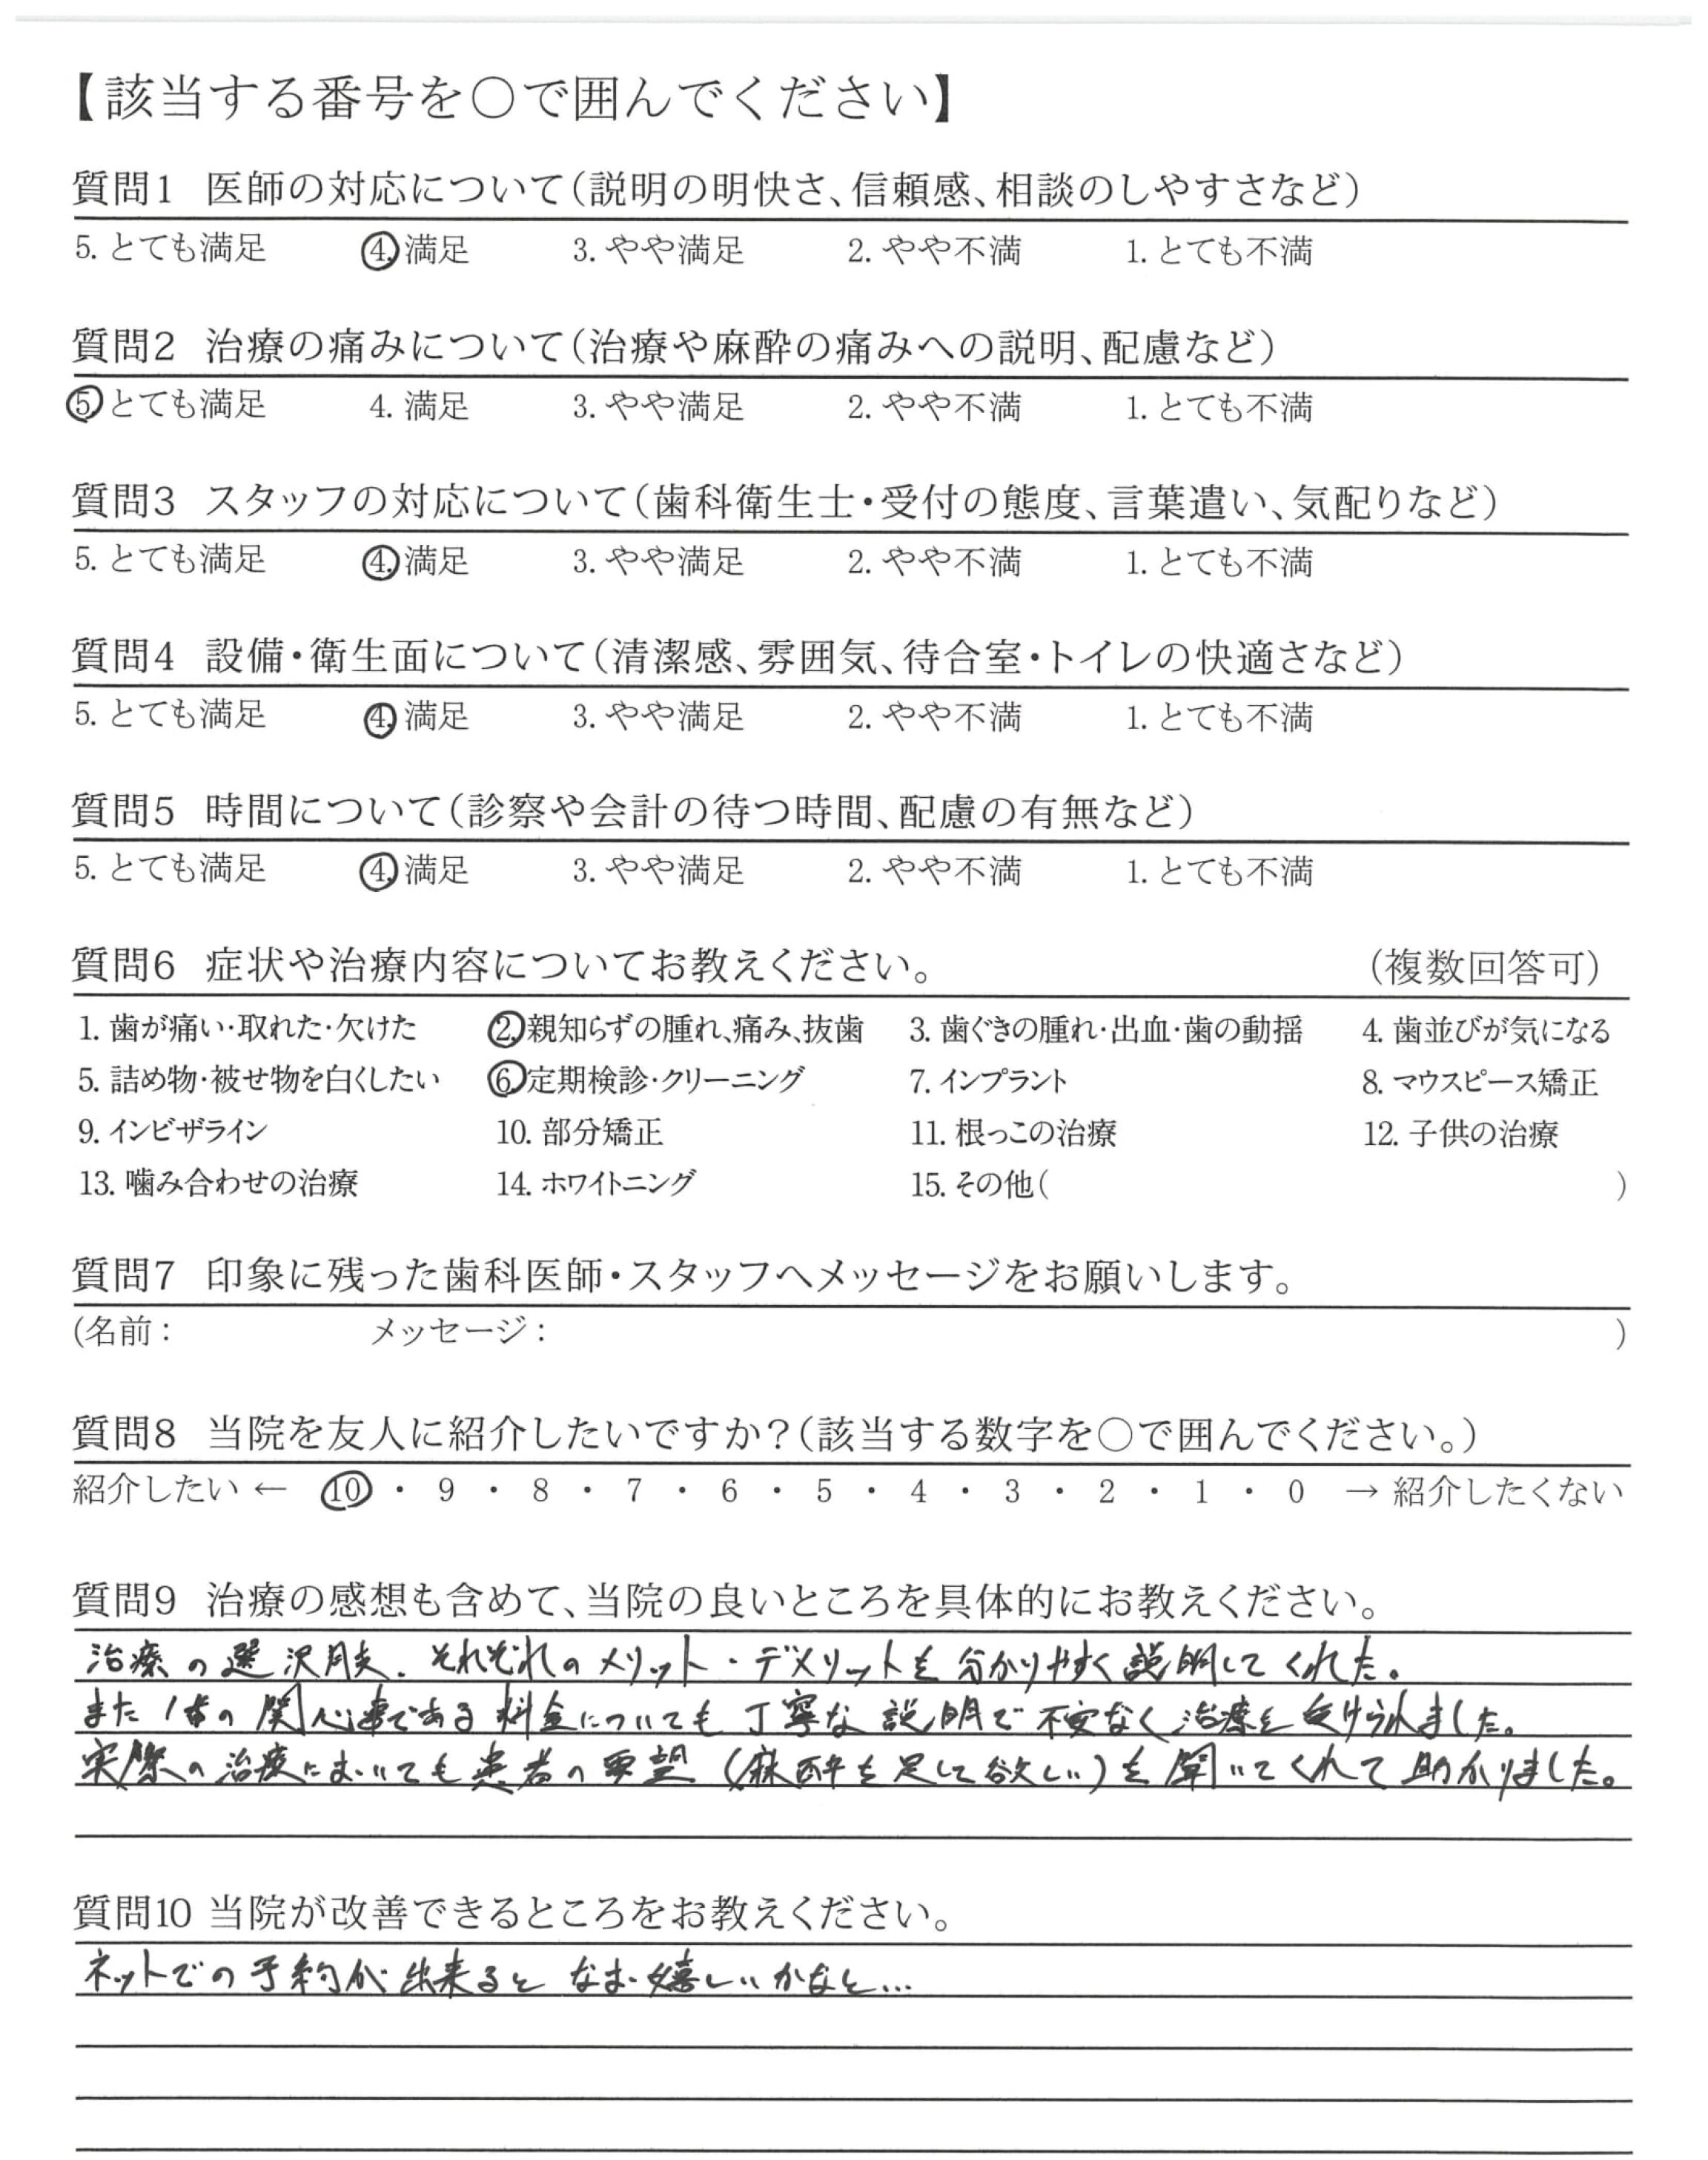 【該当する番号を○で囲んでください】
質問1 医師の対応について（説明の明快さ、信頼感、相談のしやすさなど）
5. とても満足 4. 満足 3. やや満足 2. やや不満 1. とても不満
質問2 治療の痛みについて（治療や麻酔の痛みへの説明、配慮など）
5. とても満足 4. 満足 3. やや満足 2. やや不満 1. とても不満
質問3 スタッフの対応について（歯科衛生士・受付の態度、言葉遣い、気配りなど）
5. とても満足 4. 満足 3. やや満足 2. やや不満 1. とても不満
質問4 設備・衛生面について（清潔感、雰囲気、待合室・トイレの快適さなど）
5. とても満足 4. 満足 3. やや満足 2. やや不満 1. とても不満
質問5 時間について（診察や会計の待つ時間、配慮の有無など）
5. とても満足 4. 満足 3. やや満足 2. やや不満 1. とても不満
質問6 症状や治療内容についてお教えください。 （複数回答可）
1. 歯が痛い・取れた・欠けた 2. 親知らずの腫れ、痛み、抜歯 3. 歯ぐきの腫れ・出血・歯の動揺 4. 歯並びが気になる
5. 詰め物・被せ物を白くしたい 6. 定期検診・クリーニング 7. インプラント 8. マウスピース矯正
9. インビザライン 10. 部分矯正 11. 根っこの治療 12. 子供の治療
13. 噛み合わせの治療 14. ホワイトニング 15. その他（ ）
質問7 印象に残った歯科医師・スタッフへメッセージをお願いします。
（名前： メッセージ： ）
質問8 当院を友人に紹介したいですか？（該当する数字を○で囲んでください。）
紹介したい ← 10 ・ 9 ・ 8 ・ 7 ・ 6 ・ 5 ・ 4 ・ 3 ・ 2 ・ 1 ・ 0 → 紹介したくない
質問9 治療の感想も含めて、当院の良いところを具体的にお教えください。
治療の選沢肢、それぞれのメリット・デメリットを分かりやすく説明してくれた。
また1番の関心事である料金についても丁寧な説明で不安なく治療を受けられました。
実際の治療においても患者の要望（麻酔を足して欲しい）を聞いてくれて助かりました。
質問10 当院が改善できるところをお教えください。
ネットでの予約が出来るとなお嬉しいかなと…